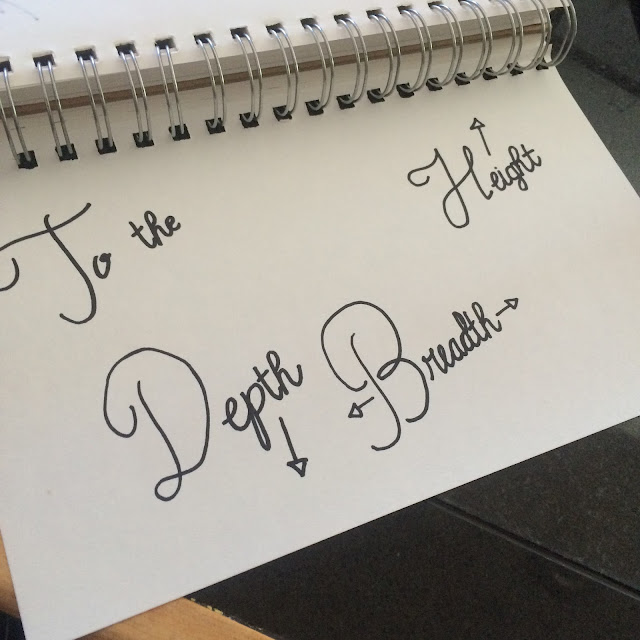 To the Height
Depth Breadth